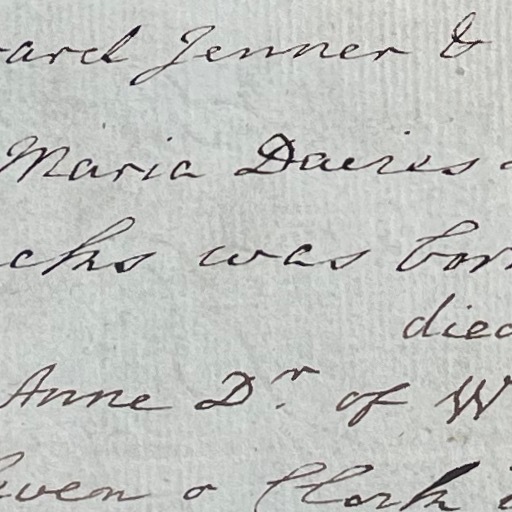 ard Jenner &
Maria Davies
cks was born
died
Anne Dr. of W
even o Clock